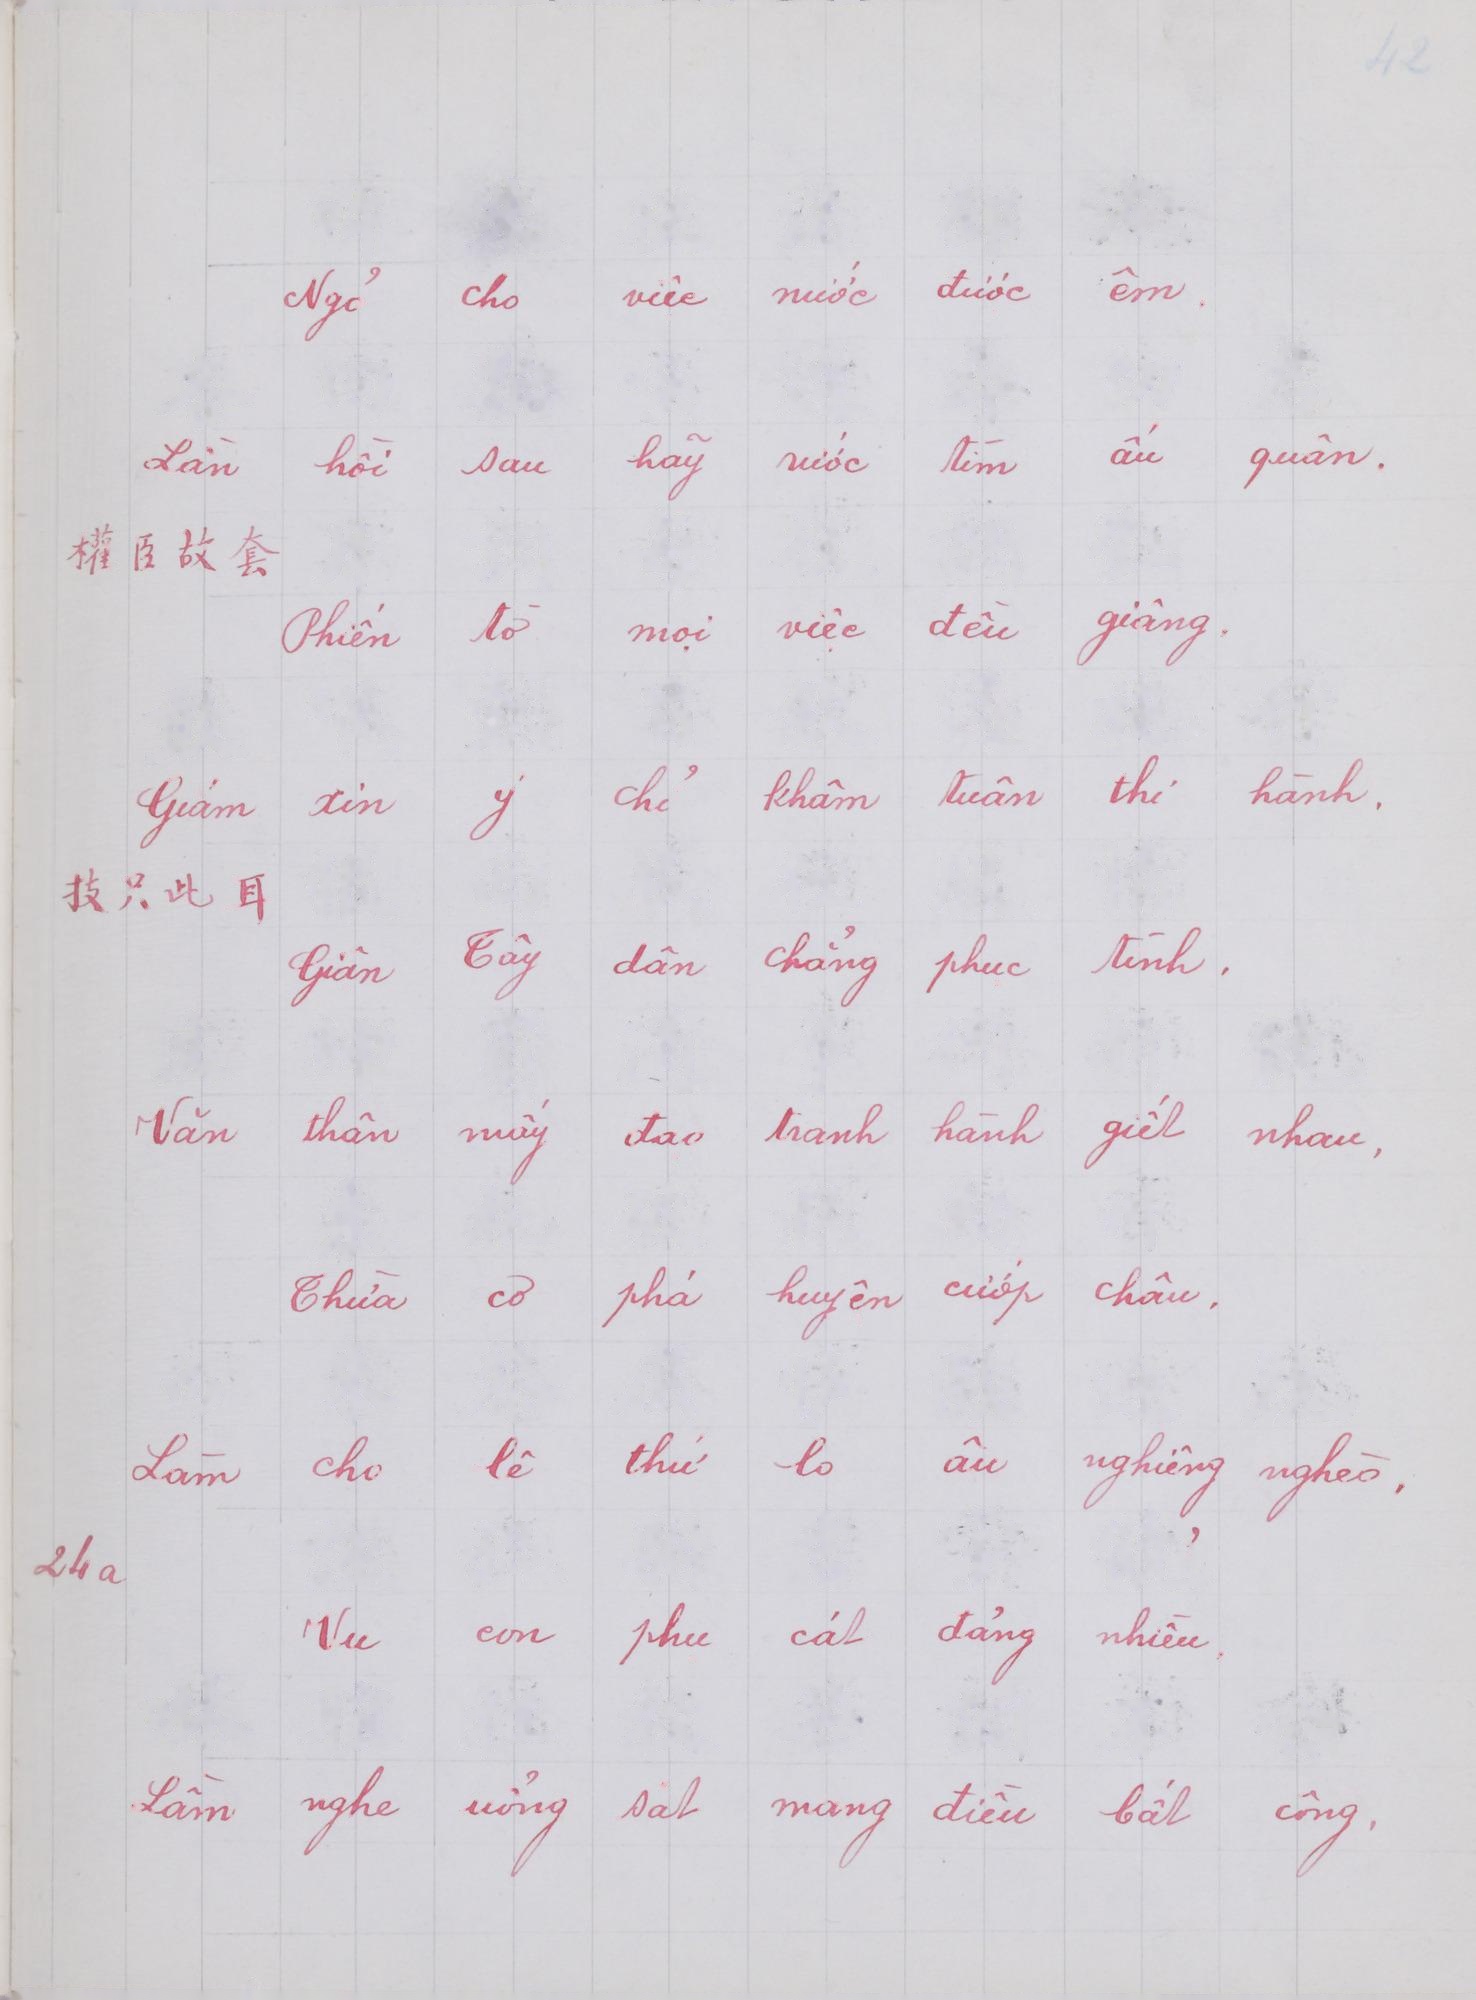 42
Ngỏ cho việc nước được êm.
Lần hồi sau hãy rước tìm ấu quân.
權臣故套
Phiến tờ mọi việc đều giâng.
Giám xin ý chỉ khâm tuân thi hành.
技只此耳
Giân Tây dân chẳng phuc tình.
Văn thân mấy đao tranh hành giết nhau,
Thừa cơ phá huyện cướp châu.
Làm cho lê thứ lo âu nghiêng nghèo,
24a
Vu con phu cát đảng nhiều.
Lầm nghe uổng sat mang điều bất công,